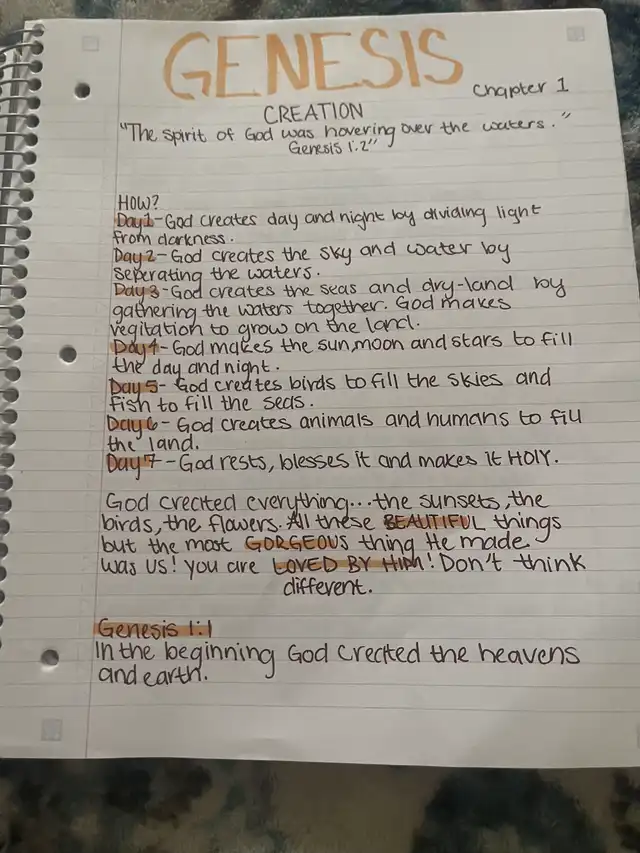 GENESIS
Chapter 1
CREATION
"The spirit of God was hovering over the waters."
Genesis 1:2"
HOW?
Day 1-God creates day and night by dividing light
from darkness.
Day 2-God creates the sky and water by
seperating the waters.
Day 3-God creates the seas and dry-land by
gathering the waters together. God makes
vegitation to grow on the land.
Day 4-God makes the sun, moon and stars to fill
the day and night.
Day 5- God creates birds to fill the skies and
fish to fill the seas.
Day 6- God creates animals and humans to fill
the land.
Day 7-God rests, blesses it and makes it HOlY.
God created everything...the sunsets, the
birds, the flowers. All these BEAUTIFUL things
but the most GORGEOUS thing He made.
was US! you are LOVED BY HIM! Don't think
different.
Genesis 1:1
In the beginning God created the heavens
and earth.